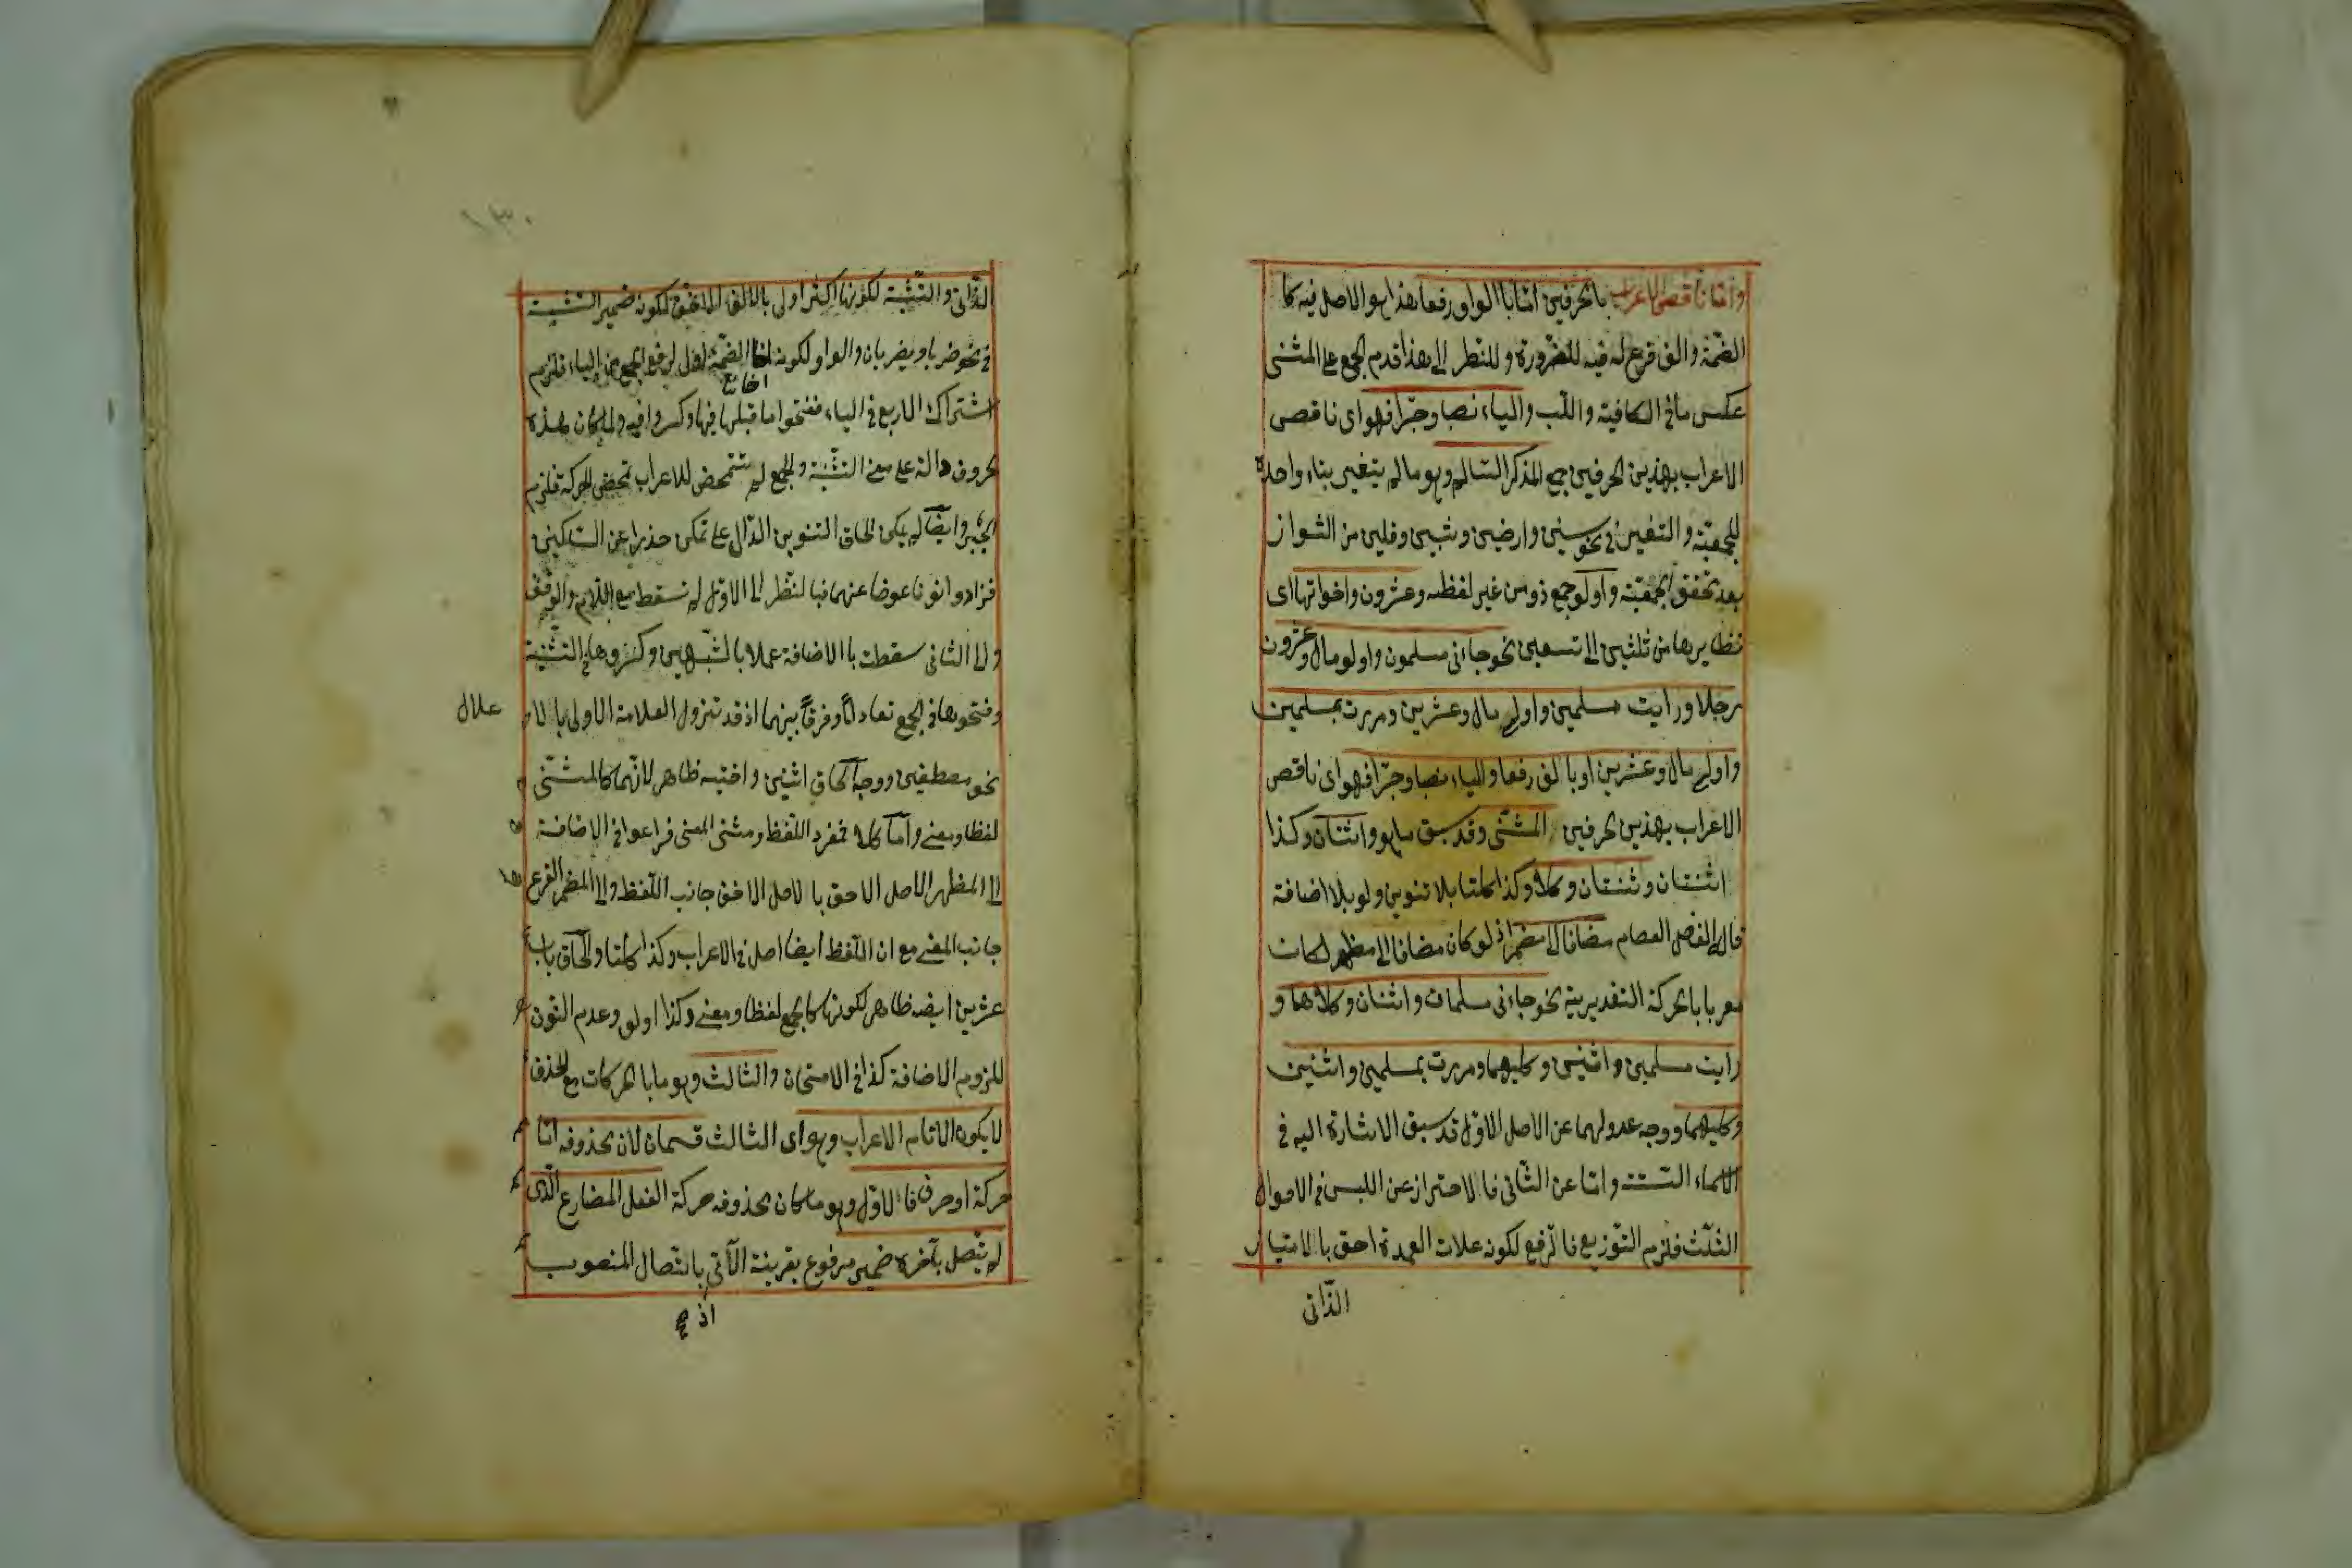 واما ناقص الاعراب بالحرفين اما بالواو رفعا هذا هو الاصل فيه كا
الضمة والالف فرع له فيه للضرورة وللنظر الى هذا قدم الجمع على المثنى
عكس ما فى الكافية واللب والياء نصبا وجرا فهو اى ناقص
الاعراب بهذين الحرفين جمع المذكر السالم وهو ما لم يتغير بناء واحده
للجمعية والتغير فى نحو سنين وارضين وثبين وقلين من الشواز
بعد تحقق الجمعية واولو جمع ذو من غير لفظه وعشرون واخواتها اى
نظايرها من ثلثين الى تسعين نحو جاءنى مسلمون واولو مال وعشرون
رجلا ورايت مسلمين واولى مال وعشرين ومررت بمسلمين
واولى مال وعشرين او بالف رفعا والياء نصبا وجرا فهو اى ناقص
الاعراب بهذين الحرفين المثنى وقد سبق ما هو واثنان وكذا
اثنتان وثنتان وكلا وكذا كلتا بلا تنوين ولو بلا اضافة
قاله الفضل العصام مضافا الى مضمر اذ لو كان مضافا الى مظهر لكان
معربا بالحركة التقديرية نحو جاءنى مسلمان واثنان وكلاهما و
رايت مسلمين واثنين وكليهما ومررت بمسلمين واثنين
وكليهما ووجه عدولهما عن الاصل الاول قد سبق الاشارة اليه فى
الاسماء الستة واما عن الثانى فالاحتراز عن اللبس فى الاحوال
الثلث فلزم التوزيع فالرفع لكونه علات العمدة احق بالامتياز
الذانى
١٣٠
الذاتى والتثنية لكونها اكثر اولى بالالف لكونه ضمير التثنية
فى نحو ضربا ويضربان والواو لكونه الضمة لرفع الجمع الياء فلزم
اشتراك الاربع فى الياء ففتحوا ما قبلها فيها وكسروا فيه ولما كان هذه
الحروف دالة على معنى التثنية والجمع لم تتمحض للاعراب تمحض الحركة فلزم
الجبر وايضا لم يكن الحاق التنوين الدال على تمكن حذرا عن الساكنين
فزادوا نونا عوضا عنهما فبالنظر الى الاول لم تسقط مع اللام والوقف
والى الثانى سقطت بالاضافة عملا بالشبهين وكسروها فى التثنية
وفتحوها فى الجمع تعادلا وفرقا بينهما اذ قد تزول العلامة الاولى بالا
علال
نحو مصطفين ووجه الحاق اثنين واختيه ظاهر لانهما كالمثنى
لفظا ومعنى واما كلا فمفرد اللفظ ومثنى المعنى فراعوا فى الاضافة
الى المظهر الاصل الاحق بالاصل الاخف جانب اللفظ والى المضمر الفرع
جانب المعنى مع ان اللفظ ايضا اصل فى الاعراب وكذا كلتا والحاق باب
عشرين ايضه ظاهر لكونها كالجمع لفظا ومعنى وكذا اولو وعدم النون
للزوم الاضافة كذا فى الامتحان والثالث وهو ما بالحركات مع الحذف
لا يكون الا تام الاعراب وهو اى الثالث قسمان لان محذوفه اما
حركة او حرف فالاول وهو ما كان محذوفه حركة الفعل المضارع الذى
لم يتصل بآخره ضمير مرفوع بقرينة الآتى باتصال المنصوب
اذ